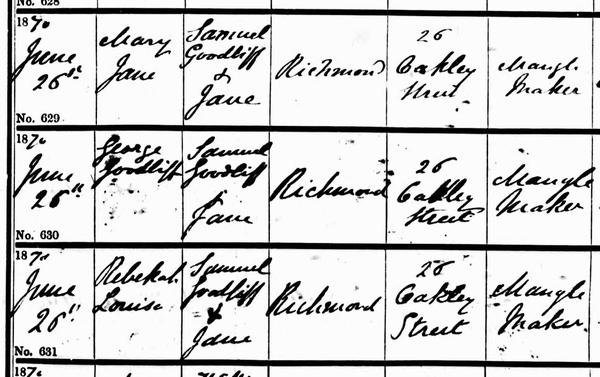 No. 628
1870
June
26th
Mary
Jane
Samuel
Goodliff
&
Jane
Richmond
26
Oakley
Street
Mangle
Maker
No. 629
1870
June
26th
George
Goodliff
Samuel
Goodliff
Jane
Richmond
26
Oakley
Street
Mangle
Maker
No. 630
1870
June
26th
Rebekah
Louisa
Samuel
Goodliff
&
Jane
Richmond
26
Oakley
Street
Mangle
Maker.
No. 631
187